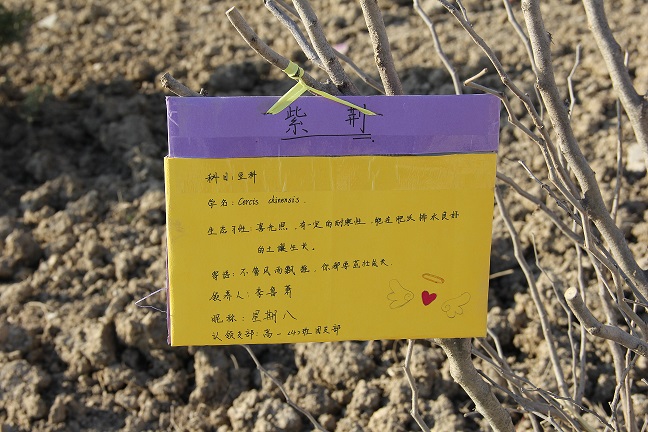 紫荆
科目:豆科
学名:Cercis chinensis.
生态习性:喜光照,有一定的耐寒性,能在肥沃排水良好
的土壤生长。
寄语:不管风雨飘摇,你都要茁壮成长.
领养人:李鲁菁
昵称:星期八
认领支部:高一247班团支部